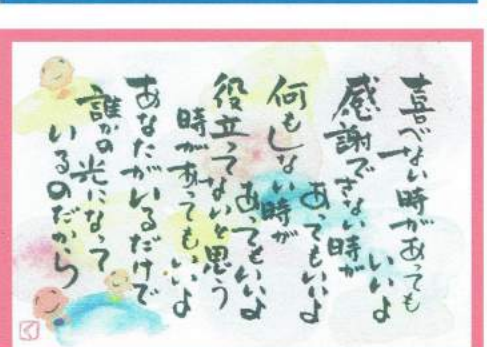 喜べない時があっても
いいよ
感謝できない時が
あってもいいよ
何もしない時が
あってもいいよ
役立ってないと思う
時があってもいいよ
あなたがいるだけで
誰かの光になって
いるのだから